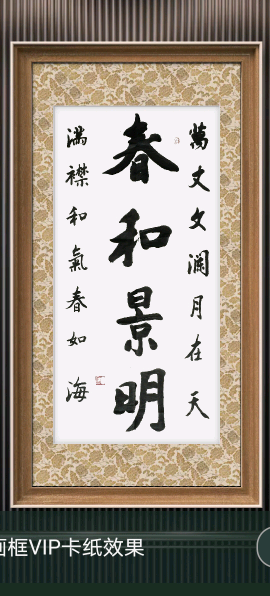 萬丈文瀾月在天
春和景明
滿襟和氣春如海
画框VIP卡纸效果